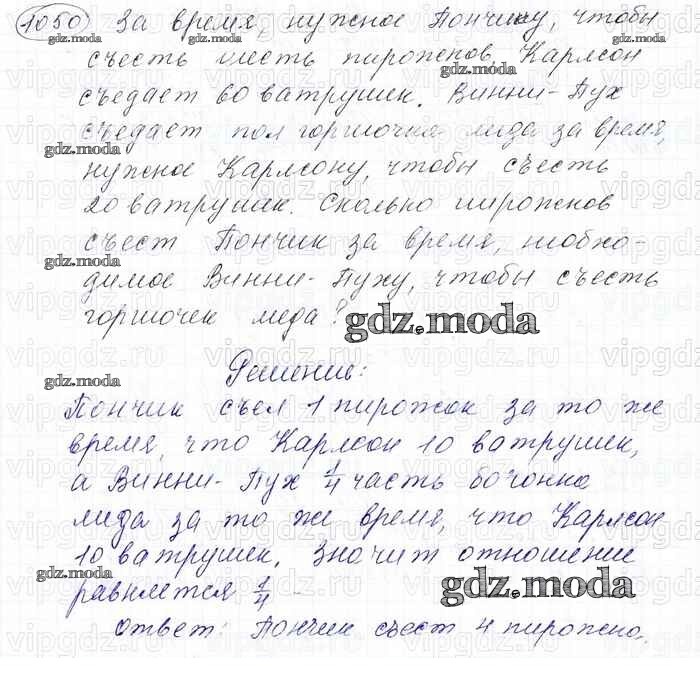 1050) За время, нужное Пончику, чтобы
съесть шесть пирожков, Карлсон
съедает 60 ватрушек. Винни-Пух
съедает пол горшочка мёда за время,
нужное Карлсону, чтобы съесть
20 ватрушек. Сколько пирожков
съест Пончик за время, необхо-
димое Винни-Пуху, чтобы съесть
горшочек меда?
Решение:
Пончик съел 1 пирожок за то же
время, что Карлсон 10 ватрушек,
а Винни-Пух 1/4 часть бочонка
мёда за то же время, что Карлсон
10 ватрушек. Значит отношение
равняется 1/4
Ответ: Пончик съест 4 пирожка.
gdz.moda
vipgdz.ru